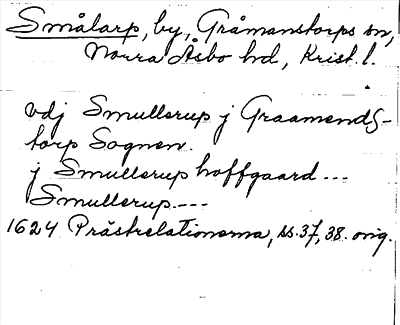 Smålarp, by, Gråmanstorps sn,
Norra Åsbo hd, Krist. l.
vdj Smullerup j Graamends-
torp Sognen.
j Smullerup hoffgaard ---
Smullerup.---
1624 Prästrelationerna, ss. 37, 38. orig.